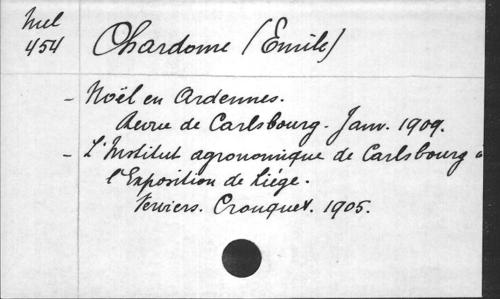 Mel
454
Chardome (Emile)
- Noël en Ardennes.
Revue de Carlsbourg. Janv. 1909.
- L'Institut agronomique de Carlsbourg à
l'Exposition de Liége.
Verviers. Crouquet. 1905.